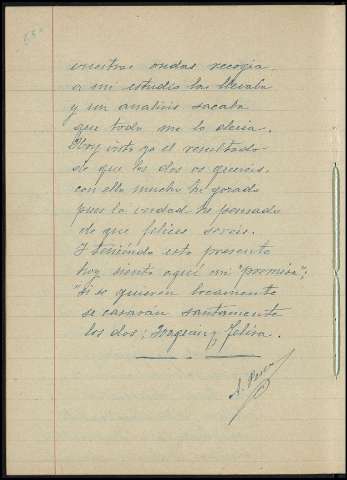 vuestras ondas recogia
a mi estudio las llevaba
y un analisis sacaba
que todo me lo decia.
Hoy visto ya el resultado
de que los dos os quereis,
con ello mucho he gozado
pues la verdad he pensado
de que felices sereis.
Y teniendo esto presente
hoy siento aquí mi "premisa";
"Si se quieren locamente
se casarán santamente
los dos; Joaquin y Felisa.
A.